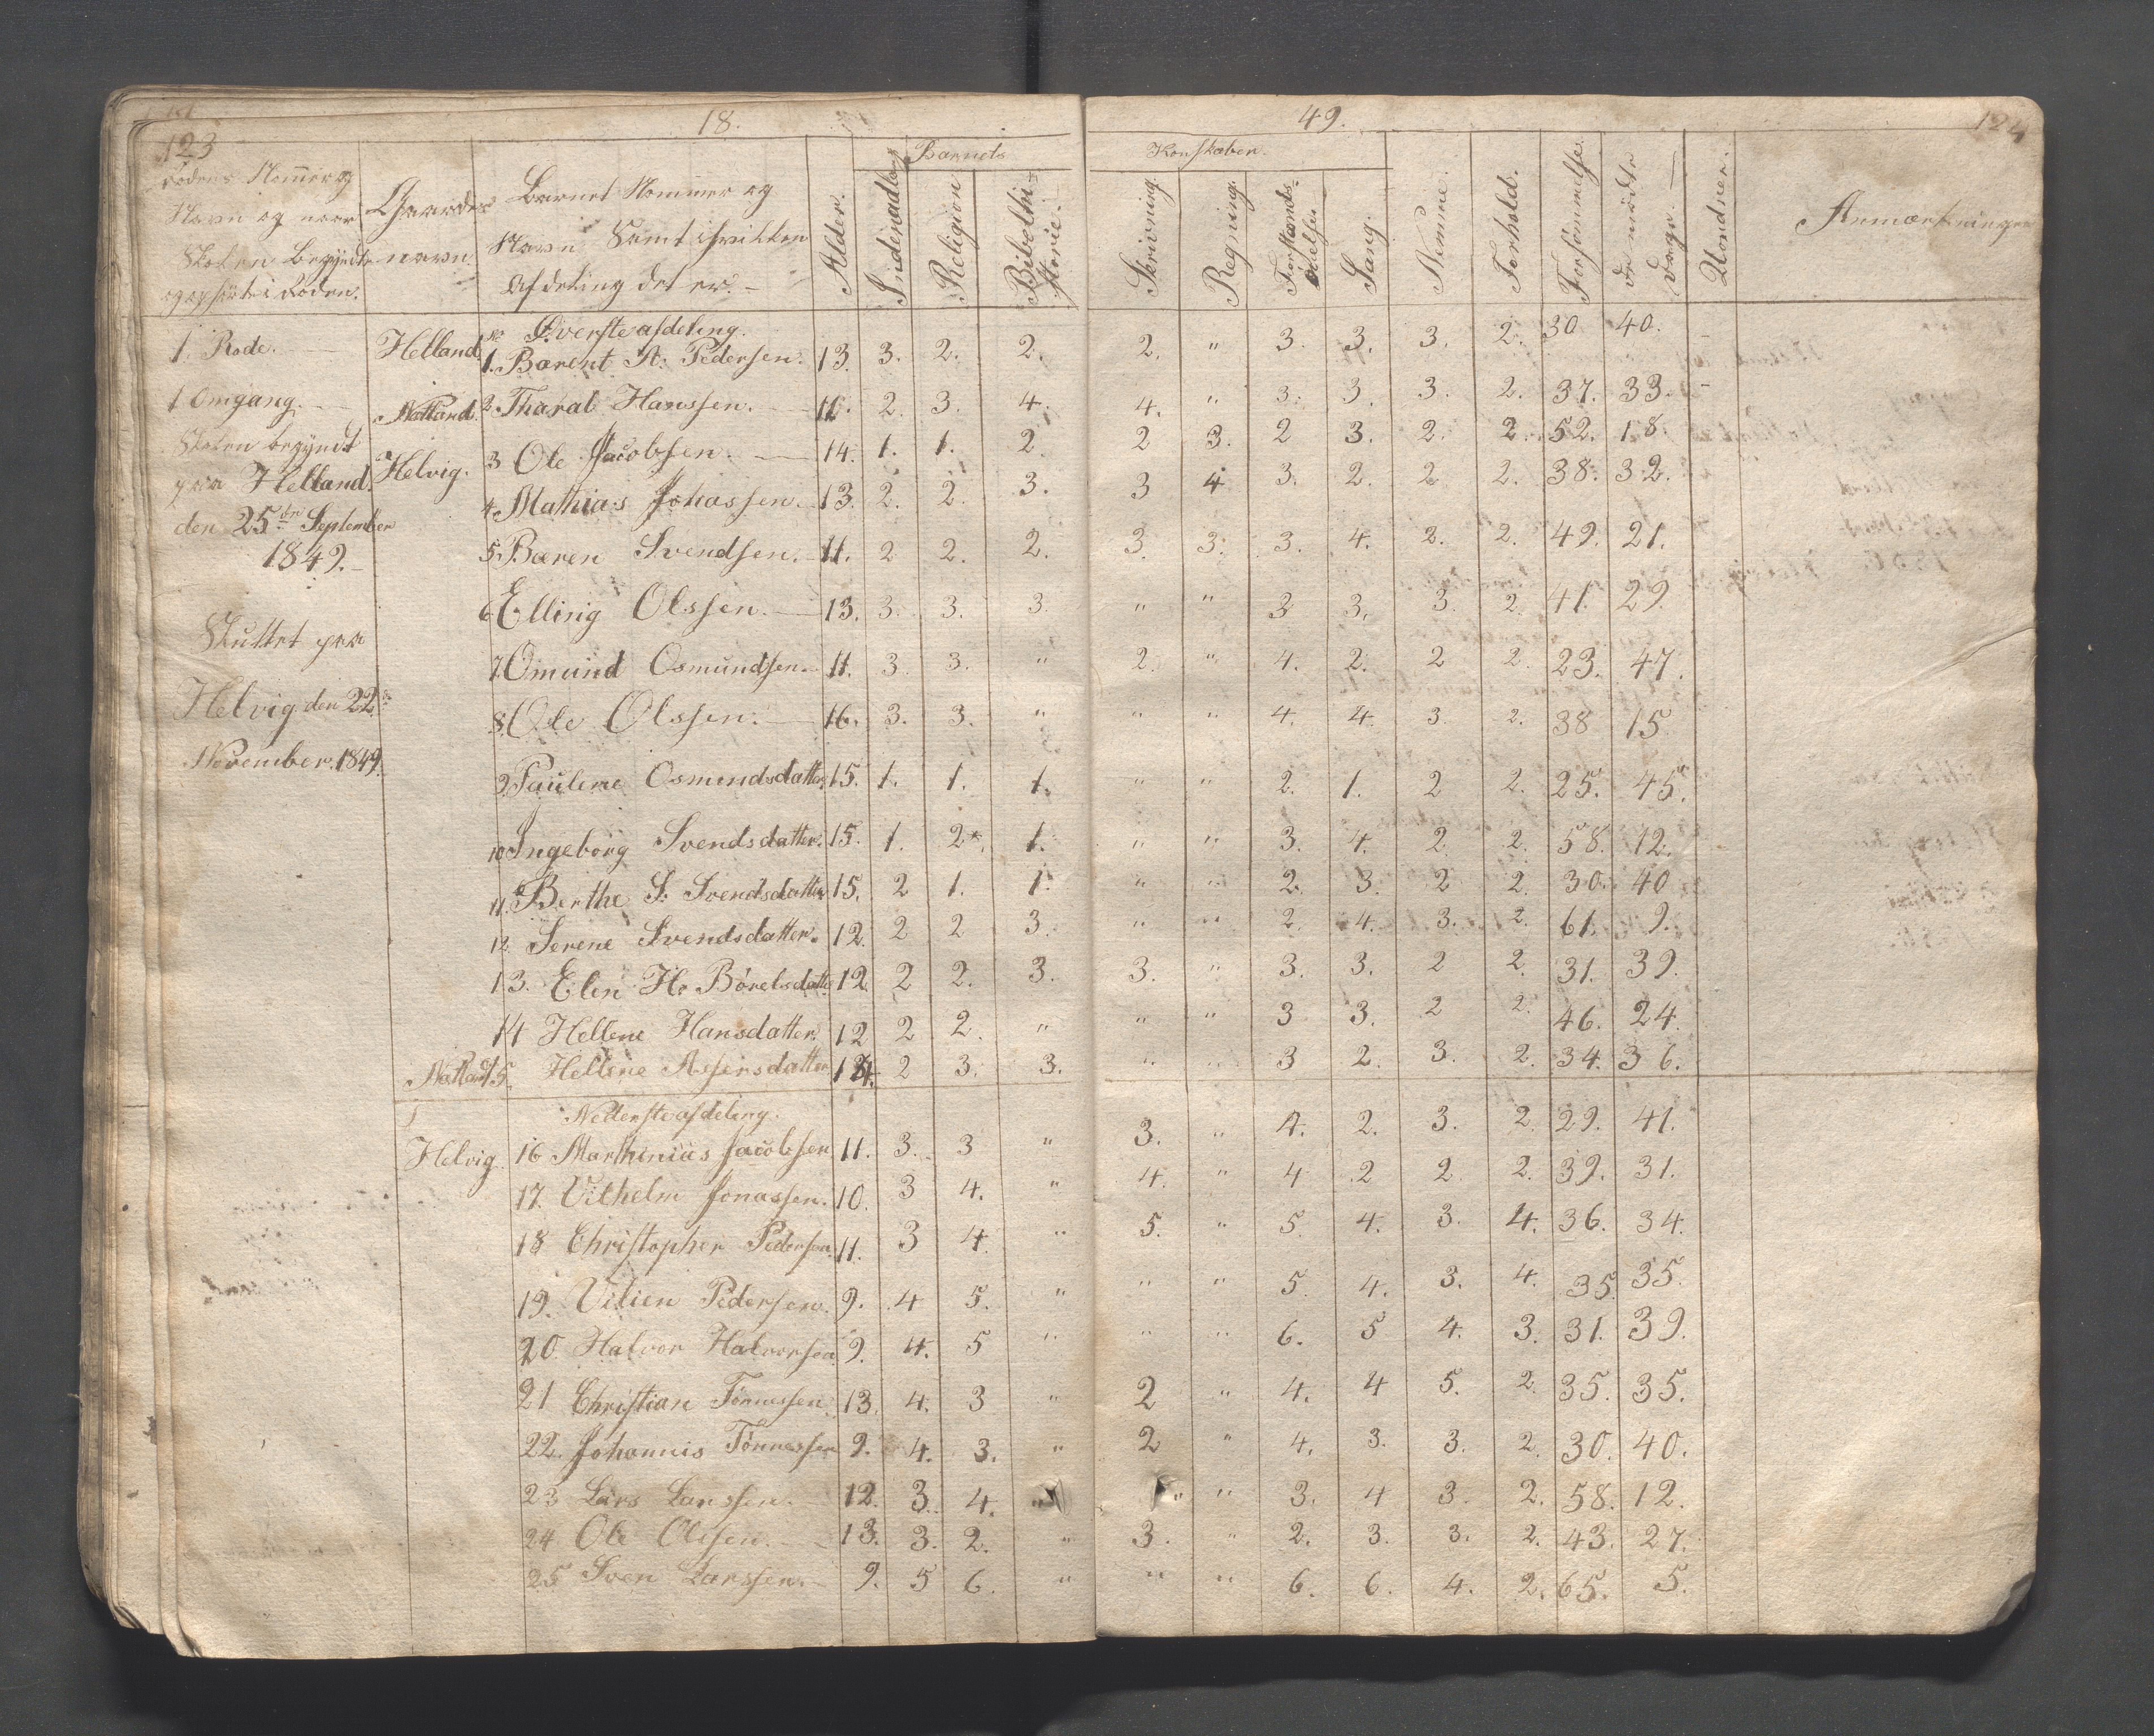 123
18.
49.
124
Rodens Nommer og
Navn og naar
Skolen begyndte
og ophørte i Roden.
Gaardens
navn.
Barnet Nommer og
Navn Samt i hvilken
Afdeling det er.
Alder.
Barnets
Indenadlæs
Religion
Bibelhistorie.
Konskaber.
Skrivning.
Regning.
Forstands-
øvelse
Sang.
Nemme.
Forhold.
Forsömmelse.
de mödte
Dage.
Anmærkninger
Øverste afdeling.
1. Rode. Helland. 1. Barent A. Pedersen. 13. 3. 2. 2. 2. " 3. 3. 3. 2. 30 40.
1 Omgang. Natland. 2 Tharal Hanssen. 11. 2. 3. 4. 4. " 3. 3. 3. 2. 37. 33.
Skolen begyndt Helvig. 3 Ole Jacobsen. 14. 1. 1. 2. 2 3. 2 3. 2. 2. 52. 18.
paa Helland. 4 Mathias Johassen. 13. 2. 2. 3. 3 4 3. 2. 2 2. 38. 32.
den 25de September 5. Bæren Svendsen. 11. 2 2. 2. 3. 3. 3. 4. 2. 2. 49. 21.
1849.
6 Elling Olssen. 13. 3. 3. 3. " " 3 3. 3. 2. 41. 29.
Sluttet paa 7. Omund Osmundsen. 11. 3 3. " 2. " 4. 2. 2 2. 23. 47.
Helvig den 22de 8. Ole Olssen. 16. 3. 3. " " " 4. 4. 3. 2. 38 15
November. 1849. 9. Paulene Osmundsdatter. 15. 1. 1. 1. " " 2. 1. 2 2. 25. 45.
10 Ingeborg Svendsdatter. 15. 1. 2*. 1. " " 3. 4. 2 2. 58. 12.
11. Berthe S. Svendsdatter 15. 2 1. 1. " " 2. 3. 2 2. 30. 40
12 Serene Svendsdatter. 12. 2 2 3. " " 2. 4. 3. 2. 61. 9.
13. Elen H. Börelsdatter. 12. 2 2. 3. 3. " 3. 3. 2 2. 31. 39.
14 Hellene Hansdatter. 12 2 2. " " " 3 3. 2 2. 46. 24.
Natland 15. Hellene Assersdatter 14. 2 3. 3. " " 3 2. 3. 2. 34. 36.
Nederste afdeling.
Helvig. 16 Marthinius Jacobsen 11. 3. 3 " 3. " 4. 2. 3. 2. 29. 41.
17. Vilhelm Jonassen. 10. 3 4. " 4. " 4 2 2 2. 39. 31.
18 Christopher Pedersen. 11. 3 4. " 5. " 5. 4. 3. 4. 36. 34.
19. Vilien Pedersen. 9. 4 5. " " " 5. 4. 3. 4. 35. 35.
20. Halvor Halvorsen 9. 4. 5 " " " 6. 5 4. 3. 31. 39.
21 Christian Tönnessen. 13. 4. 3 " 2 " 4. 4 5. 2. 35. 35.
22. Johannis Tönnessen 9. 4. 3. " 2 " 4. 3. 3. 2. 30. 40.
23 Lars Larssen. 12. 3. 4. " " " 3. 4 3. 2. 58. 12.
24 Ole Olssen. 13. 3. 2. " 3. " 2. 3. 3. 2. 43. 27.
25 Sven Larssen. 9. 5 6. " " " 6. 6. 4. 2. 65. 5.